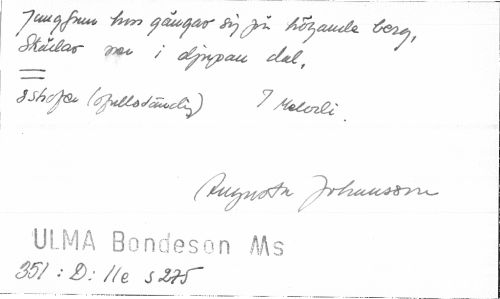 Jungfrun hon gångar sig på högande berg,
Skådar ner i djupan dal,
8 strofer (ofullständig) 1 Melodi.
Augusta Johansson
ULMA Bondeson Ms
351 : D: 11e s 275